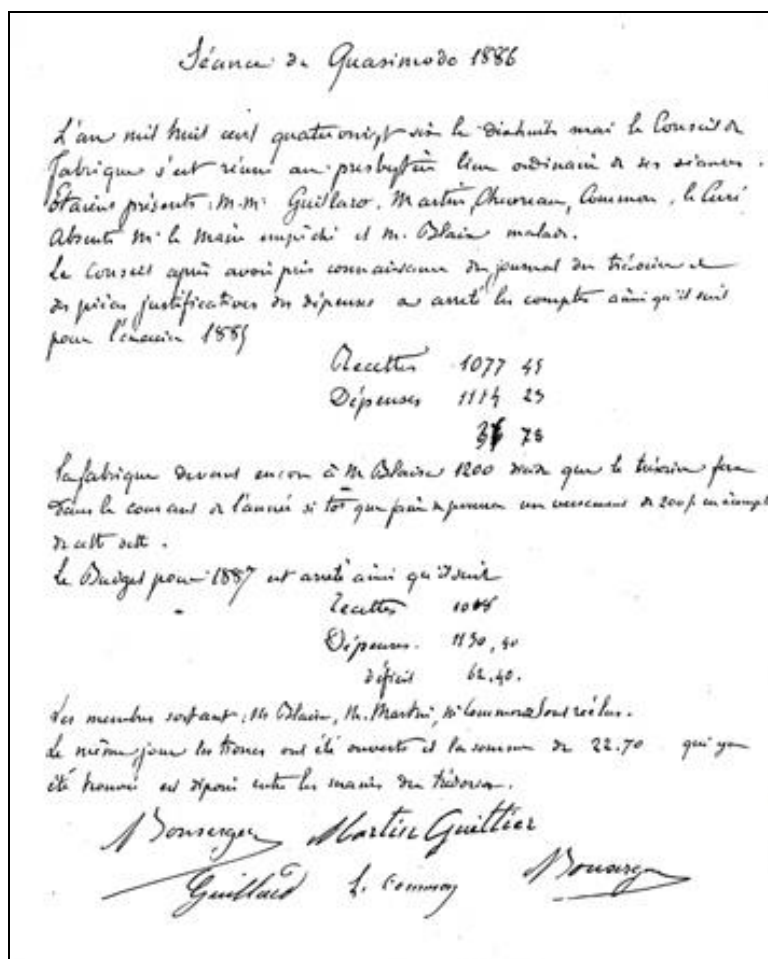 Séance de Quasimodo 1886
L'an mil huit cent quatrevingt six le dixhuit mai le Conseil de
fabrique s'est réuni au presbytère lieu ordinaire de ses séances.
Etaient présents: M.M. Guillard, Martin, Common, le Curé
Absents M. le Maire empêché et M. Blain malade.
Le Conseil après avoir pris connaissance du journal du trésorier et
des pièces justificatives des dépenses a arrêté les comptes ainsi qu'il suit
pour l'exercice 1885
Recettes 1077 45
Dépenses 1114 23
78
La fabrique devant encore à M. 1200 décide que le trésorier fera
dans le courant de l'année si tôt que faire se pourra un versement de 200 f. en acompte
de cette dette.
Le Budget pour 1887 est arrêté ainsi qu'il suit
Recettes
Dépenses. 1130,40
déficit 62.40.
Les membres sortant: M. Blain, M. Martin, M. Common sont réélus.
Le même jour les troncs ont été ouverts et la somme de 22.70 qui y a
été trouvée est déposée entre les mains du trésorier.
Martin Guittier
Guillard L. Common